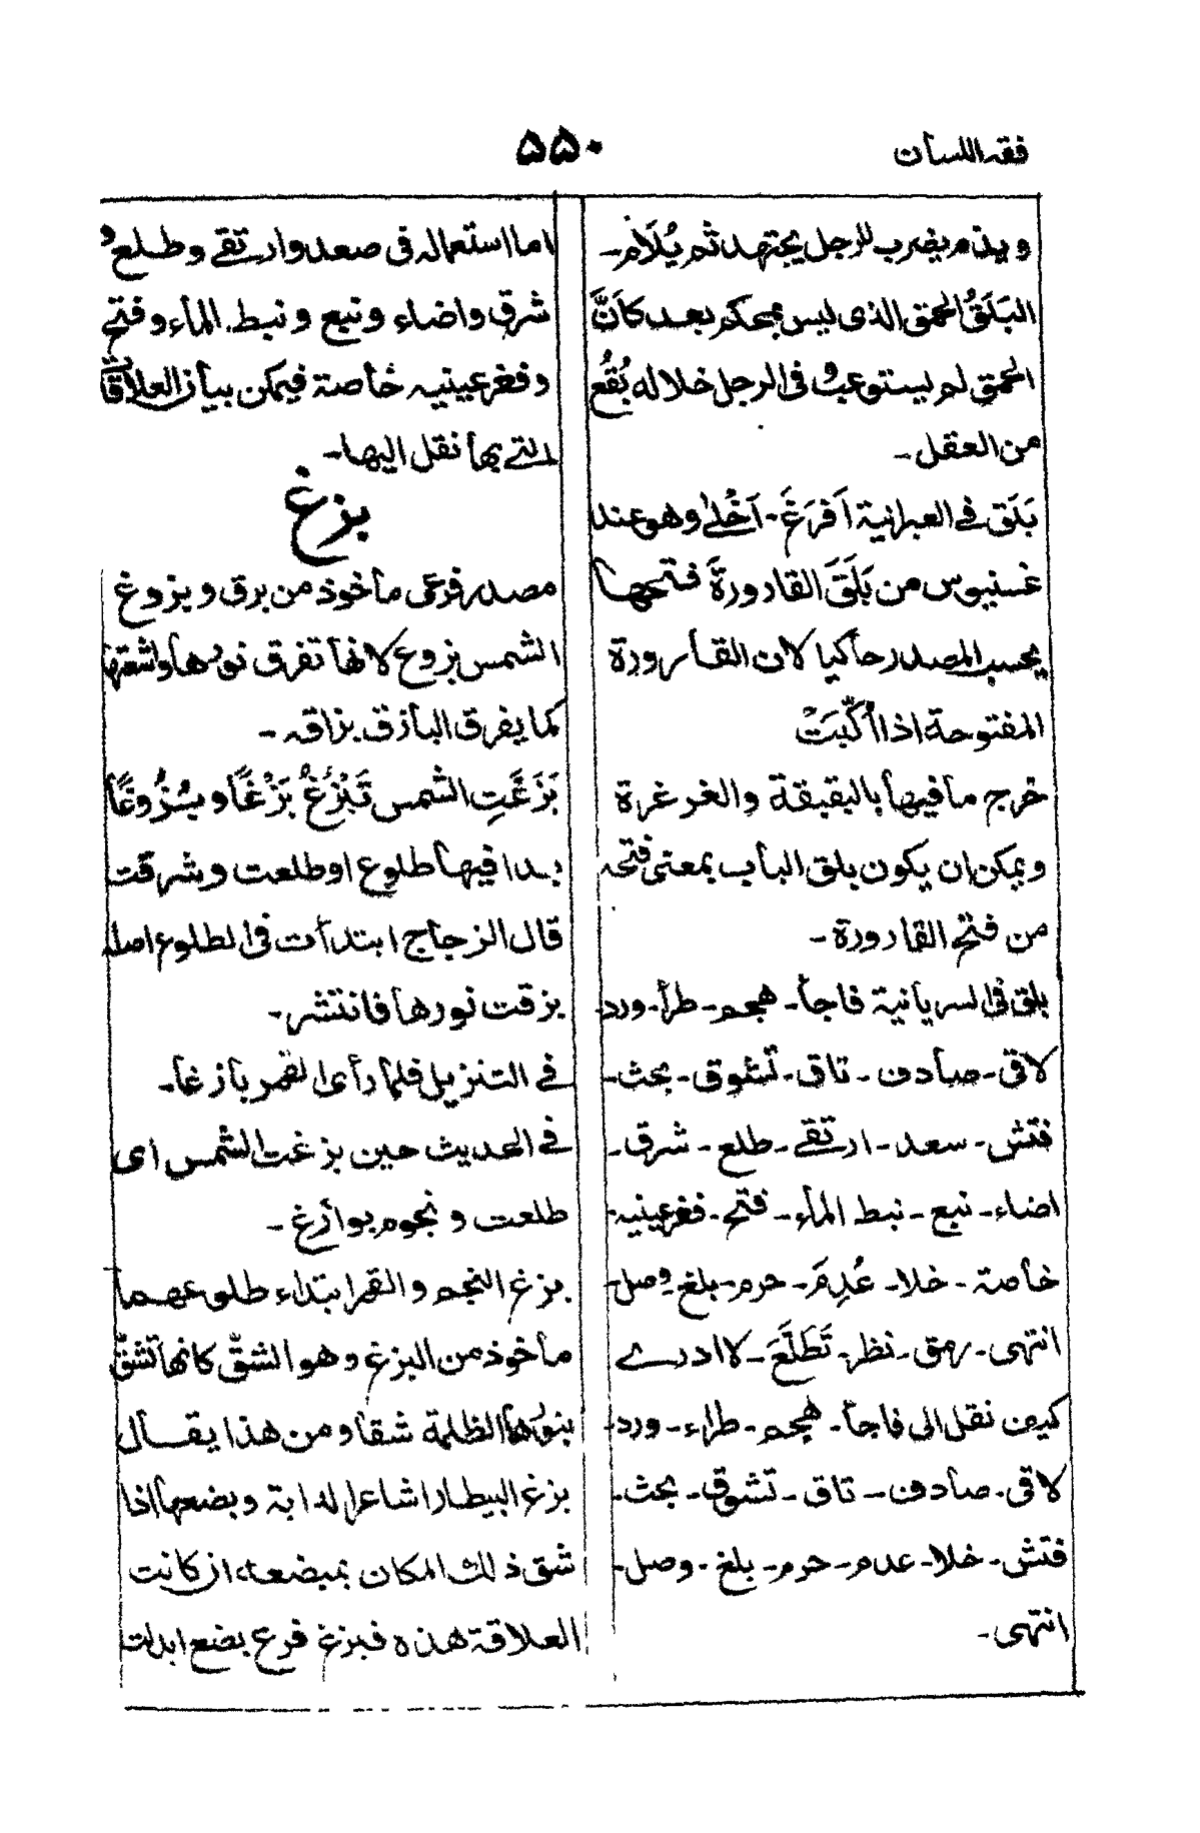 فقه اللسان
۵۵۰
ويذم يضرب للرجل يجتهد ثم يُلَام -
البَلَقُ الحمق الذى ليس بمحكم بعد كاَنَّ
الحمق لم يستوعب فى الرجل خلاله بُقَعُ
من العقل -
بَلَق فے العبرانية اَفرَغَ - اَخْلٰے وهو عند
غسنيوس من بَلَقَ القارورةَ فتحها
بحسب المصدر حاكيا لان القارورة
المفتوحة اذا اُكِبَّتْ
خرج ما فيها بالبقبقة والغرغرة
ويمكن ان يكون بلق الباب بمعنى فتحه
من فتح القارورة -
بلق فى السريانية فاجأ - هجم - طرأ - ورد
لاقى - صادف - تاق - تشوق - بحث -
فتش - سعد - ارتقے - طلع - شرق -
اضاء - نبع - نبط الماء - فتح - فغر عينيه
خاصة - خلا - عُدِمَ - حرم - بلغ - وصل -
انتهى - رمق - نظر - تَطَلَّعَ - لا ادرے
كيف نقل الى فاجأ - هجم - طراء - ورد -
لاقى - صادف - تاق - تشوق - بحث -
فتش - خلا - عدم - حرم - بلغ - وصل -
انتهى -
اما استعماله فى صعد وارتقے وطلع و
شرق واضاء ونبع ونبط الماء وفتح
وفغر عينيه خاصة فيمكن بيان العلاقات
التے بها نقل اليها -
بزغ
مصدر فرعى ماخوذ من برق وبزوغ
الشمس بزوغ لانها تفرق نورها واشعتها
كما يفرق البازق بزاقه -
بَزَغَتِ الشمس تَبْزُغُ بَزْغًا وبُزُوغًا
بدا فيها طلوع او طلعت وشرقت
قال الزجاج ابتدأت فى الطلوع اصله
بزقت نورها فانتشر -
فے التنزيل فلما رأى القمر بازغا -
فے الحديث حين بزغت الشمس اى
طلعت ونجوم بوازغ -
بزغ النجم والقمر ابتداء طلوعهما
ماخوذ من البزغ وهو الشقّ كانها تشقّ
بنورها الظلمة شقا ومن هذا يقال
بزغ البيطار اشاعر الدابة وبضعها اذا
شق ذلك المكان بمبضعه ان كانت
العلاقة هذه فبزغ فرع بضع ابدلت